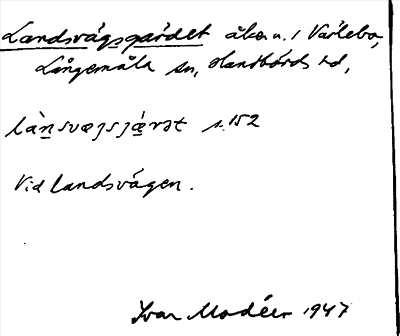 Landsvägsgärdet åker n. i Värlebo,
Långemåla sn, Handbörds hd,
lànsvægsjæ̀rət s. 152
Vid landsvägen.
Ivar Modéer 1947